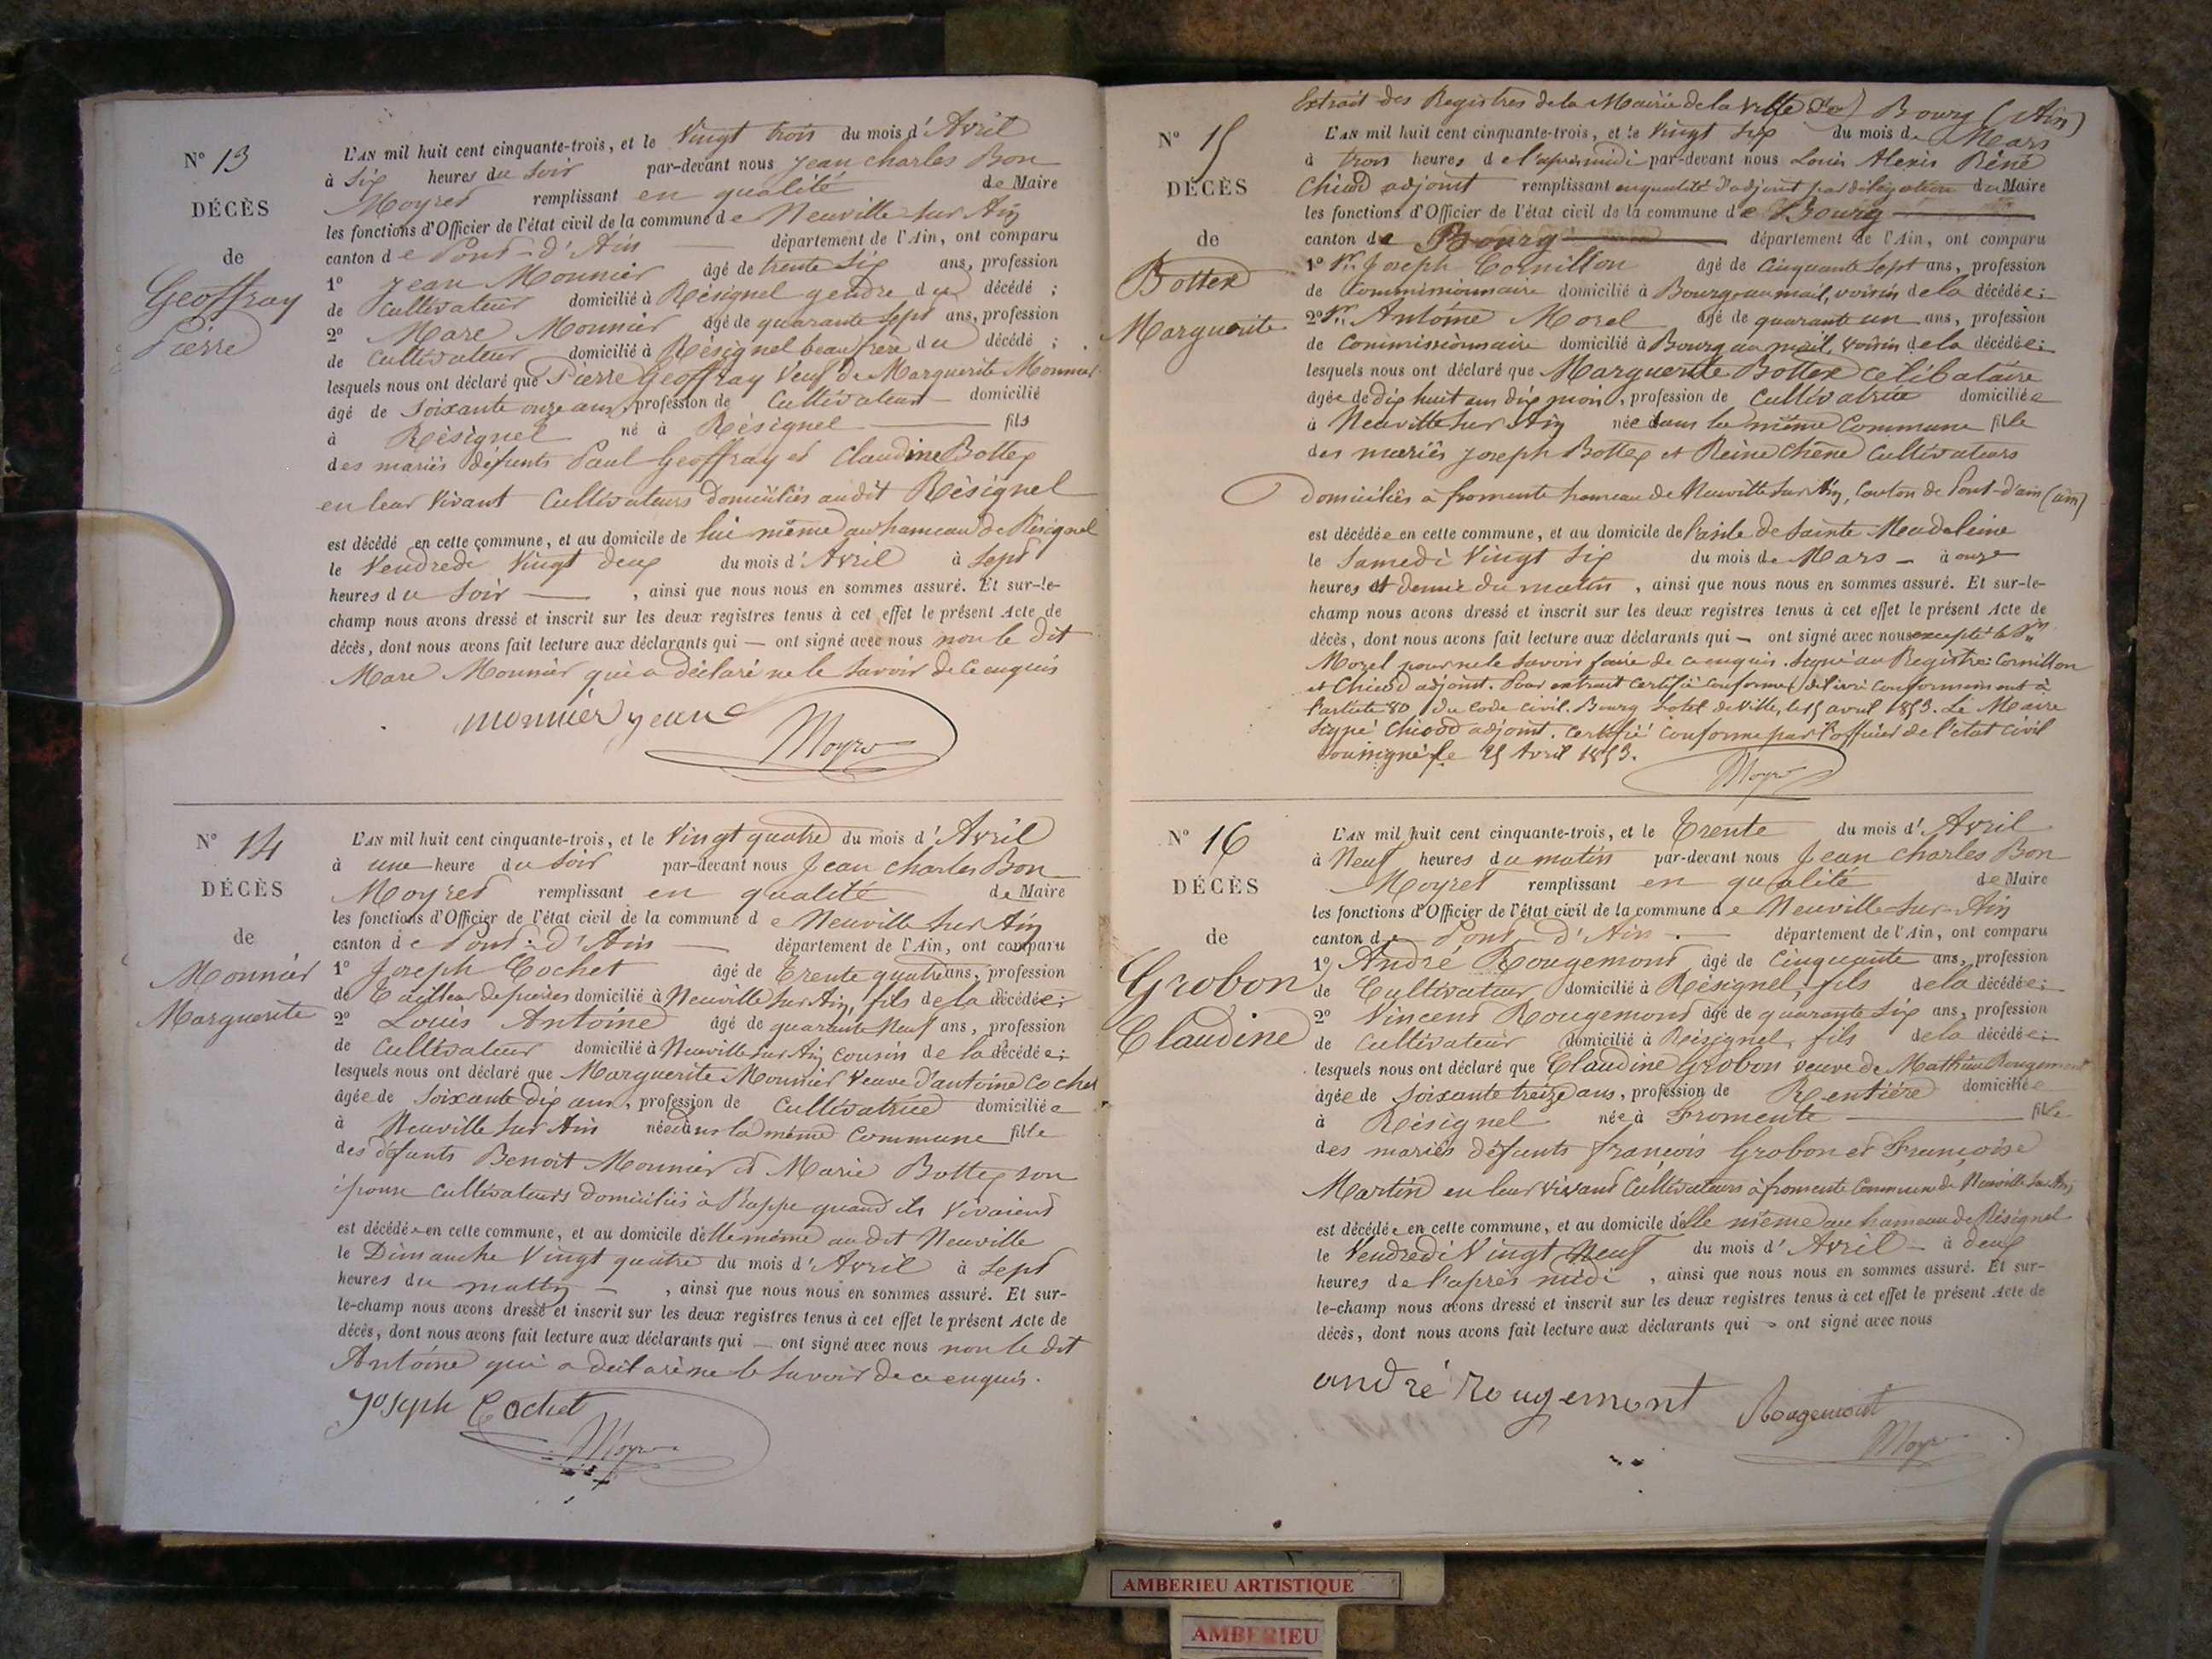 N° 13
DÉCÈS
de
Geoffray
Pierre
L'AN mil huit cent cinquante-trois, et le Vingt trois du mois d'Avril
à Six heures du Soir par-devant nous Jean Charles Bon
Moyret remplissant en qualité de Maire
les fonctions d'Officier de l'état civil de la commune de Neuville sur Ain
canton de Pont-d'Ain département de l'Ain, ont comparu
1° Jean Monnier âgé de trente Six ans, profession
de Cultivateur domicilié à Résignel gendre du décédé ;
2° Marc Monnier âgé de quarante Sept ans, profession
de Cultivateur domicilié à Résignel beau frère du décédé ;
lesquels nous ont déclaré que Pierre Geoffray Veuf de Marguerite Monnier
âgé de Soixante onze ans, profession de Cultivateur domicilié
à Résignel né à Résignel fils
des mariés défunts Paul Geoffray et Claudine Bottex
en leur Vivant Cultivateurs domiciliés audit Résignel
est décédé en cette commune, et au domicile de lui même au hameau de Résignel
le Vendredi Vingt deux du mois d'Avril à Sept
heures du Soir , ainsi que nous nous en sommes assuré. Et sur-le-
champ nous avons dressé et inscrit sur les deux registres tenus à cet effet le présent Acte de
décès, dont nous avons fait lecture aux déclarants qui — ont signé avec nous non le dit
Marc Monnier qui a déclaré ne le Savoir de ce enquis
monnier jean Moyret
N° 14
DÉCÈS
de
Monnier
Marguerite
L'AN mil huit cent cinquante-trois, et le Vingt quatre du mois d'Avril
à une heure du Soir par-devant nous Jean Charles Bon
Moyret remplissant en qualité de Maire
les fonctions d'Officier de l'état civil de la commune de Neuville sur Ain
canton de Pont-d'Ain département de l'Ain, ont comparu
1° Joseph Cochet âgé de Trente quatre ans, profession
de Tailleur de pierres domicilié à Neuville sur Ain, fils de la décédée ;
2° Louis Antoine âgé de quarante Neuf ans, profession
de Cultivateur domicilié à Neuville sur Ain cousin de la décédée ;
lesquels nous ont déclaré que Marguerite Monnier Veuve d'antoine Cochet
âgée de Soixante dix ans, profession de Cultivatrice domiciliée
à Neuville sur Ain née dans la même Commune fille
des défunts Benoit Monnier et Marie Bottex son
épouse Cultivateurs domiciliés à Rappe quand ils Vivaient
est décédée en cette commune, et au domicile d'elle même audit Neuville
le Dimanche Vingt quatre du mois d'Avril à Sept
heures du mattin , ainsi que nous nous en sommes assuré. Et sur-
le-champ nous avons dressé et inscrit sur les deux registres tenus à cet effet le présent Acte de
décès, dont nous avons fait lecture aux déclarants qui — ont signé avec nous non le dit
Antoine qui a déclaré ne le Savoir de ce enquis.
Joseph Cochet
Moyret
Extrait des Registres de la Mairie de la Ville de Bourg (Ain)
N° 15
DÉCÈS
de
Bottex
Marguerite
L'AN mil huit cent cinquante-trois, et le Vingt Six du mois de Mars
à trois heures de l'après midi par-devant nous Louis Alexis Réné
Chicod adjoint remplissant en qualité d'adjoint par délégation du Maire
les fonctions d'Officier de l'état civil de la commune de Bourg
canton de Bourg département de l'Ain, ont comparu
1° Sr. Joseph Cornillon âgé de Cinquante Sept ans, profession
de Commissionnaire domicilié à Bourg au mail, voisin de la décédée ;
2° Sr. Antoine Morel âgé de quarante un ans, profession
de Commissionnaire domicilié à Bourg au mail, voisin de la décédée ;
lesquels nous ont déclaré que Marguerite Bottex Celibataire
âgée de dix huit ans dix mois, profession de Cultivatrice domiciliée
à Neuville sur Ain née dans la même Commune fille
des mariés Joseph Bottex et Reine Chêne Cultivateurs
domiciliés à fromente hameau de Neuville sur Ain, Canton de Pont-d'ain (ain)
est décédée en cette commune, et au domicile de l'asile de Sainte Madeleine
le Samedi Vingt Six du mois de Mars — à onze
heures et demie du matin , ainsi que nous nous en sommes assuré. Et sur-le-
champ nous avons dressé et inscrit sur les deux registres tenus à cet effet le présent Acte de
décès, dont nous avons fait lecture aux déclarants qui — ont signé avec nous excepté le Sr.
Morel pour ne le Savoir faire de ce enquis. Signé au Registre: Cornillon
et Chicod adjoint. Pour extrait Certifié Conforme, délivré Conformément à
l'article 80 du Code Civil. Bourg hotel de Ville, le 15 avril 1853. Le Maire
Signé Chicod adjoint. Certifié Conforme par l'officier de l'état Civil
Soussigné le 25 Avril 1853.
Moyret
N° 16
DÉCÈS
de
Grobon
Claudine
L'AN mil huit cent cinquante-trois, et le Trente du mois d'Avril
à Neuf heures du matin par-devant nous Jean Charles Bon
Moyret remplissant en qualité de Maire
les fonctions d'Officier de l'état civil de la commune de Neuville-sur-Ain
canton de Pont-d'Ain département de l'Ain, ont comparu
1° André Rougemont âgé de Cinquante ans, profession
de Cultivateur domicilié à Résignel, fils de la décédée ;
2° Vincent Rougemont âgé de quarante Six ans, profession
de Cultivateur domicilié à Résignel, fils de la décédée ;
lesquels nous ont déclaré que Claudine Grobon veuve de Mathieu Rougemont
âgée de Soixante treize ans, profession de Rentière domiciliée
à Résignel née à Fromente fille
des mariés défunts françois Grobon et Françoise
Martin en leur vivant Cultivateurs à fromente Commune de Neuville sur Ain
est décédée en cette commune, et au domicile d'elle même au hameau de Résignel
le Vendredi Vingt Neuf du mois d'Avril — à deux
heures de l'après midi , ainsi que nous nous en sommes assuré. Et sur-
le-champ nous avons dressé et inscrit sur les deux registres tenus à cet effet le présent Acte de
décès, dont nous avons fait lecture aux déclarants qui ont signé avec nous
andré rougemont Rougemont
Moyret
AMBERIEU ARTISTIQUE
AMBERIEU